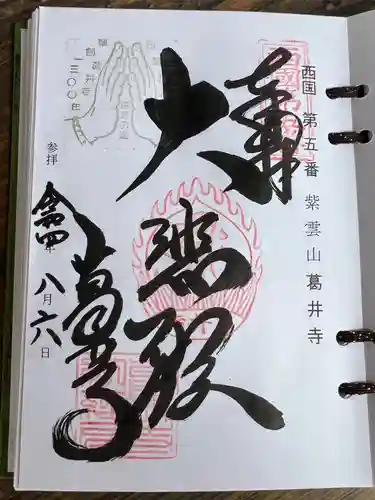 西国 第五番 紫雲山 葛井寺
奉
大悲殿
葛井寺
参拝
令和四年 八月六日